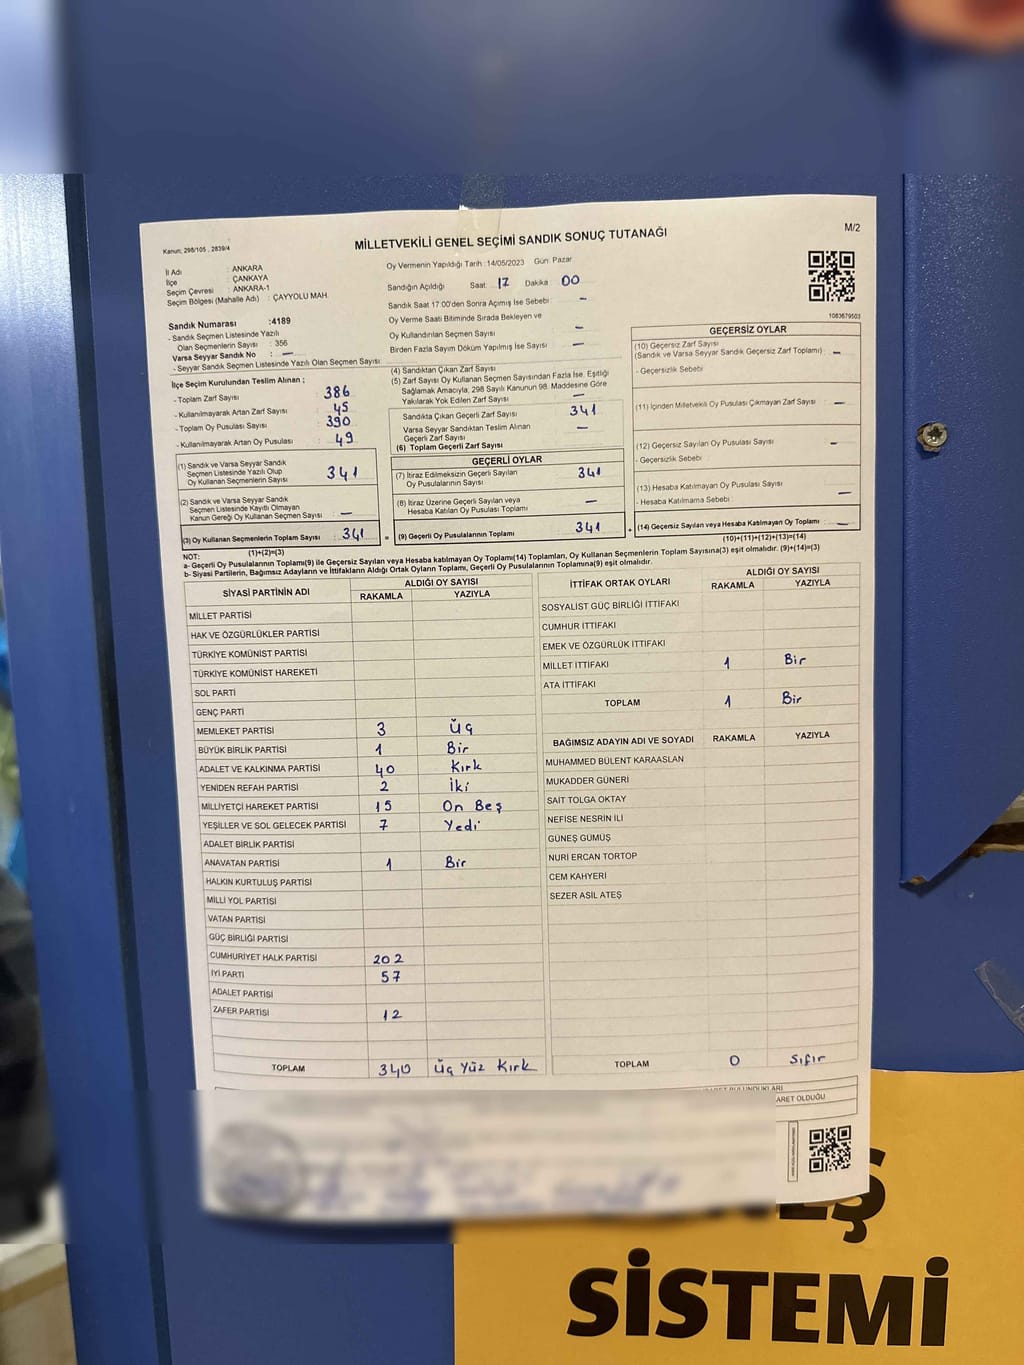 Kanun: 298/105 , 2839/4
MİLLETVEKİLİ GENEL SEÇİMİ SANDIK SONUÇ TUTANAĞI
M/2
İl Adı : ANKARA
İlçe : ÇANKAYA
Seçim Çevresi : ANKARA-1
Seçim Bölgesi (Mahalle Adı) : ÇAYYOLU MAH.
Sandık Numarası :4189
- Sandık Seçmen Listesinde Yazılı
Olan Seçmenlerin Sayısı : 356
Varsa Seyyar Sandık No : —
- Seyyar Sandık Seçmen Listesinde Yazılı Olan Seçmen Sayısı:
Oy Vermenin Yapıldığı Tarih :14/05/2023 Gün: Pazar
Sandığın Açıldığı Saat: 17 Dakika 00
Sandık Saat 17:00'den Sonra Açımış İse Sebebi : —
Oy Verme Saati Bitiminde Sırada Bekleyen ve
Oy Kullandırılan Seçmen Sayısı : —
Birden Fazla Sayım Döküm Yapılmış İse Sayısı : —
1083679503
İlçe Seçim Kurulundan Teslim Alınan ;
- Toplam Zarf Sayısı : 386
- Kullanılmayarak Artan Zarf Sayısı : 45
- Toplam Oy Pusulası Sayısı : 390
- Kullanılmayarak Artan Oy Pusulası : 49
(1) Sandık ve Varsa Seyyar Sandık
Seçmen Listesinde Yazılı Olup
Oy Kullanan Seçmenlerin Sayısı : 341
(2) Sandık ve Varsa Seyyar Sandık
Seçmen Listesinde Kayıtlı Olmayan
Kanun Gereği Oy Kullanan Seçmen Sayısı : —
(3) Oy Kullanan Seçmenlerin Toplam Sayısı : 341
(1)+(2)=(3)
(4) Sandıktan Çıkan Zarf Sayısı
(5) Zarf Sayısı Oy Kullanan Seçmen Sayısından Fazla İse, Eşitliği
Sağlamak Amacıyla, 298 Sayılı Kanunun 98. Maddesine Göre
Yakılarak Yok Edilen Zarf Sayısı : —
Sandıkta Çıkan Geçerli Zarf Sayısı : 341
Varsa Seyyar Sandıktan Teslim Alınan
Geçerli Zarf Sayısı : —
(6) Toplam Geçerli Zarf Sayısı
GEÇERLİ OYLAR
(7) İtiraz Edilmeksizin Geçerli Sayılan
Oy Pusulalarının Sayısı : 341
(8) İtiraz Üzerine Geçerli Sayılan veya
Hesaba Katılan Oy Pusulaları Toplamı : —
= (9) Geçerli Oy Pusulalarının Toplamı : 341
GEÇERSİZ OYLAR
(10) Geçersiz Zarf Sayısı
(Sandık ve Varsa Seyyar Sandık Geçersiz Zarf Toplamı) : —
- Geçersizlik Sebebi :
(11) İçinden Milletvekili Oy Pusulası Çıkmayan Zarf Sayısı : —
(12) Geçersiz Sayılan Oy Pusulası Sayısı : —
- Geçersizlik Sebebi :
(13) Hesaba Katılmayan Oy Pusulası Sayısı : —
- Hesaba Katılmama Sebebi :
+ (14) Geçersiz Sayılan veya Hesaba Katılmayan Oy Toplamı : —
(10)+(11)+(12)+(13)=(14)
NOT:
a- Geçerli Oy Pusulalarının Toplamı(9) ile Geçersiz Sayılan veya Hesaba katılmayan Oy Toplamı(14) Toplamları, Oy Kullanan Seçmenlerin Toplam Sayısına(3) eşit olmalıdır. (9)+(14)=(3)
b- Siyasi Partilerin, Bağımsız Adayların ve İttifakların Aldığı Ortak Oyların Toplamı, Geçerli Oy Pusulalarının Toplamına(9) eşit olmalıdır.
SİYASİ PARTİNİN ADI ALDIĞI OY SAYISI
RAKAMLA YAZIYLA
MİLLET PARTİSİ
HAK VE ÖZGÜRLÜKLER PARTİSİ
TÜRKİYE KOMÜNİST PARTİSİ
TÜRKİYE KOMÜNİST HAREKETİ
SOL PARTİ
GENÇ PARTİ
MEMLEKET PARTİSİ 3 Üç
BÜYÜK BİRLİK PARTİSİ 1 Bir
ADALET VE KALKINMA PARTİSİ 40 Kırk
YENİDEN REFAH PARTİSİ 2 İki
MİLLİYETÇİ HAREKET PARTİSİ 15 On Beş
YEŞİLLER VE SOL GELECEK PARTİSİ 7 Yedi
ADALET BİRLİK PARTİSİ
ANAVATAN PARTİSİ 1 Bir
HALKIN KURTULUŞ PARTİSİ
MİLLİ YOL PARTİSİ
VATAN PARTİSİ
GÜÇ BİRLİĞİ PARTİSİ
CUMHURİYET HALK PARTİSİ 202
İYİ PARTİ 57
ADALET PARTİSİ
ZAFER PARTİSİ 12
TOPLAM 340 Üç Yüz Kırk
İTTİFAK ORTAK OYLARI ALDIĞI OY SAYISI
RAKAMLA YAZIYLA
SOSYALİST GÜÇ BİRLİĞİ İTTİFAKI
CUMHUR İTTİFAKI
EMEK VE ÖZGÜRLÜK İTTİFAKI
MİLLET İTTİFAKI 1 Bir
ATA İTTİFAKI
TOPLAM 1 Bir
BAĞIMSIZ ADAYIN ADI VE SOYADI RAKAMLA YAZIYLA
MUHAMMED BÜLENT KARAASLAN
MUKADDER GÜNERİ
SAİT TOLGA OKTAY
NEFİSE NESRİN İLİ
GÜNEŞ GÜMÜŞ
NURİ ERCAN TORTOP
CEM KAHYERİ
SEZER ASİL ATEŞ
TOPLAM 0 Sıfır
ARET OLDUĞU
SİSTEMİ